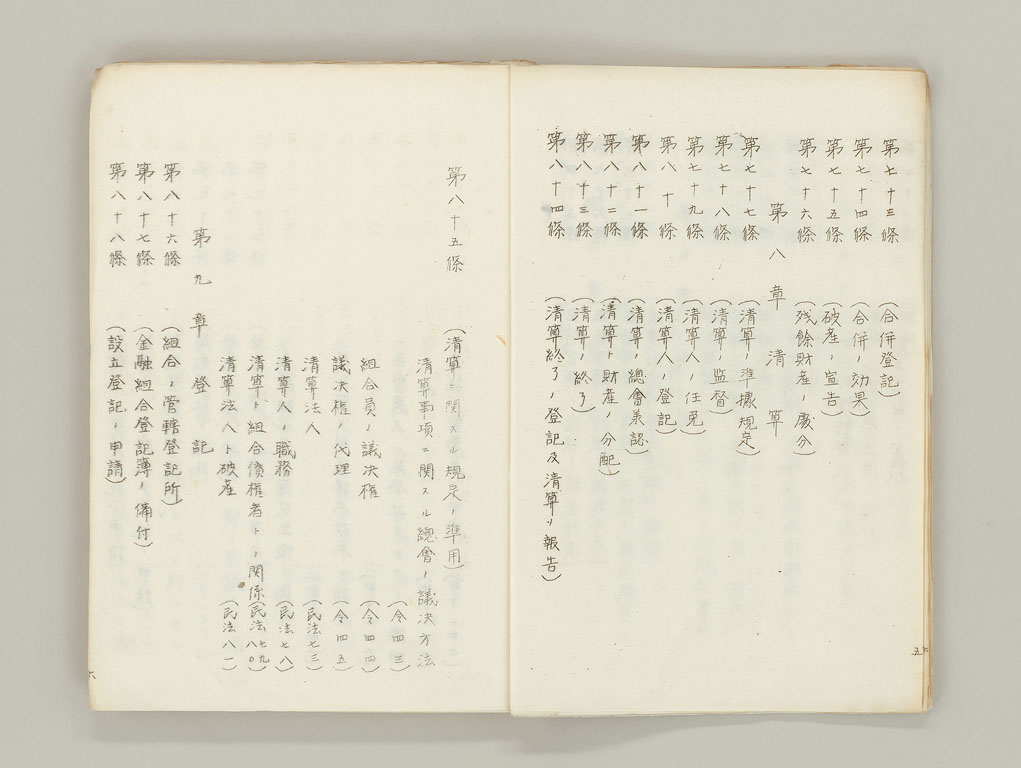 第七十三條 (合併登記)
第七十四條 (合併ノ効果)
第七十五條 (破産ノ宣告)
第七十六條 (残餘財産ノ處分)
第八章 清算
第七十七條 (清算ノ準據規定)
第七十八條 (清算ノ監督)
第七十九條 (清算人ノ任免)
第八十條 (清算人ノ登記)
第八十一條 (清算ノ總會承認)
第八十二條 (清算ト財産ノ分配)
第八十三條 (清算ノ終了)
第八十四條 (清算終了ノ登記及清算ノ報告)
五
第八十五條 (清算ニ関スル規定ノ準用)
清算事項ニ関スル總會ノ議决方法 (令四三)
組合員ノ議决権 (令四四)
議决権ノ代理 (令四五)
清算法人 (民法七三)
清算人ノ職務 (民法七八)
清算ト組合債権者トノ関係 (民法七九、八〇)
清算法人ト破産 (民法八一)
第九章 登記
第八十六條 (組合ノ管轄登記所)
第八十七條 (金融組合登記簿ノ備付)
第八十八條 (設立登記ノ申請)
六